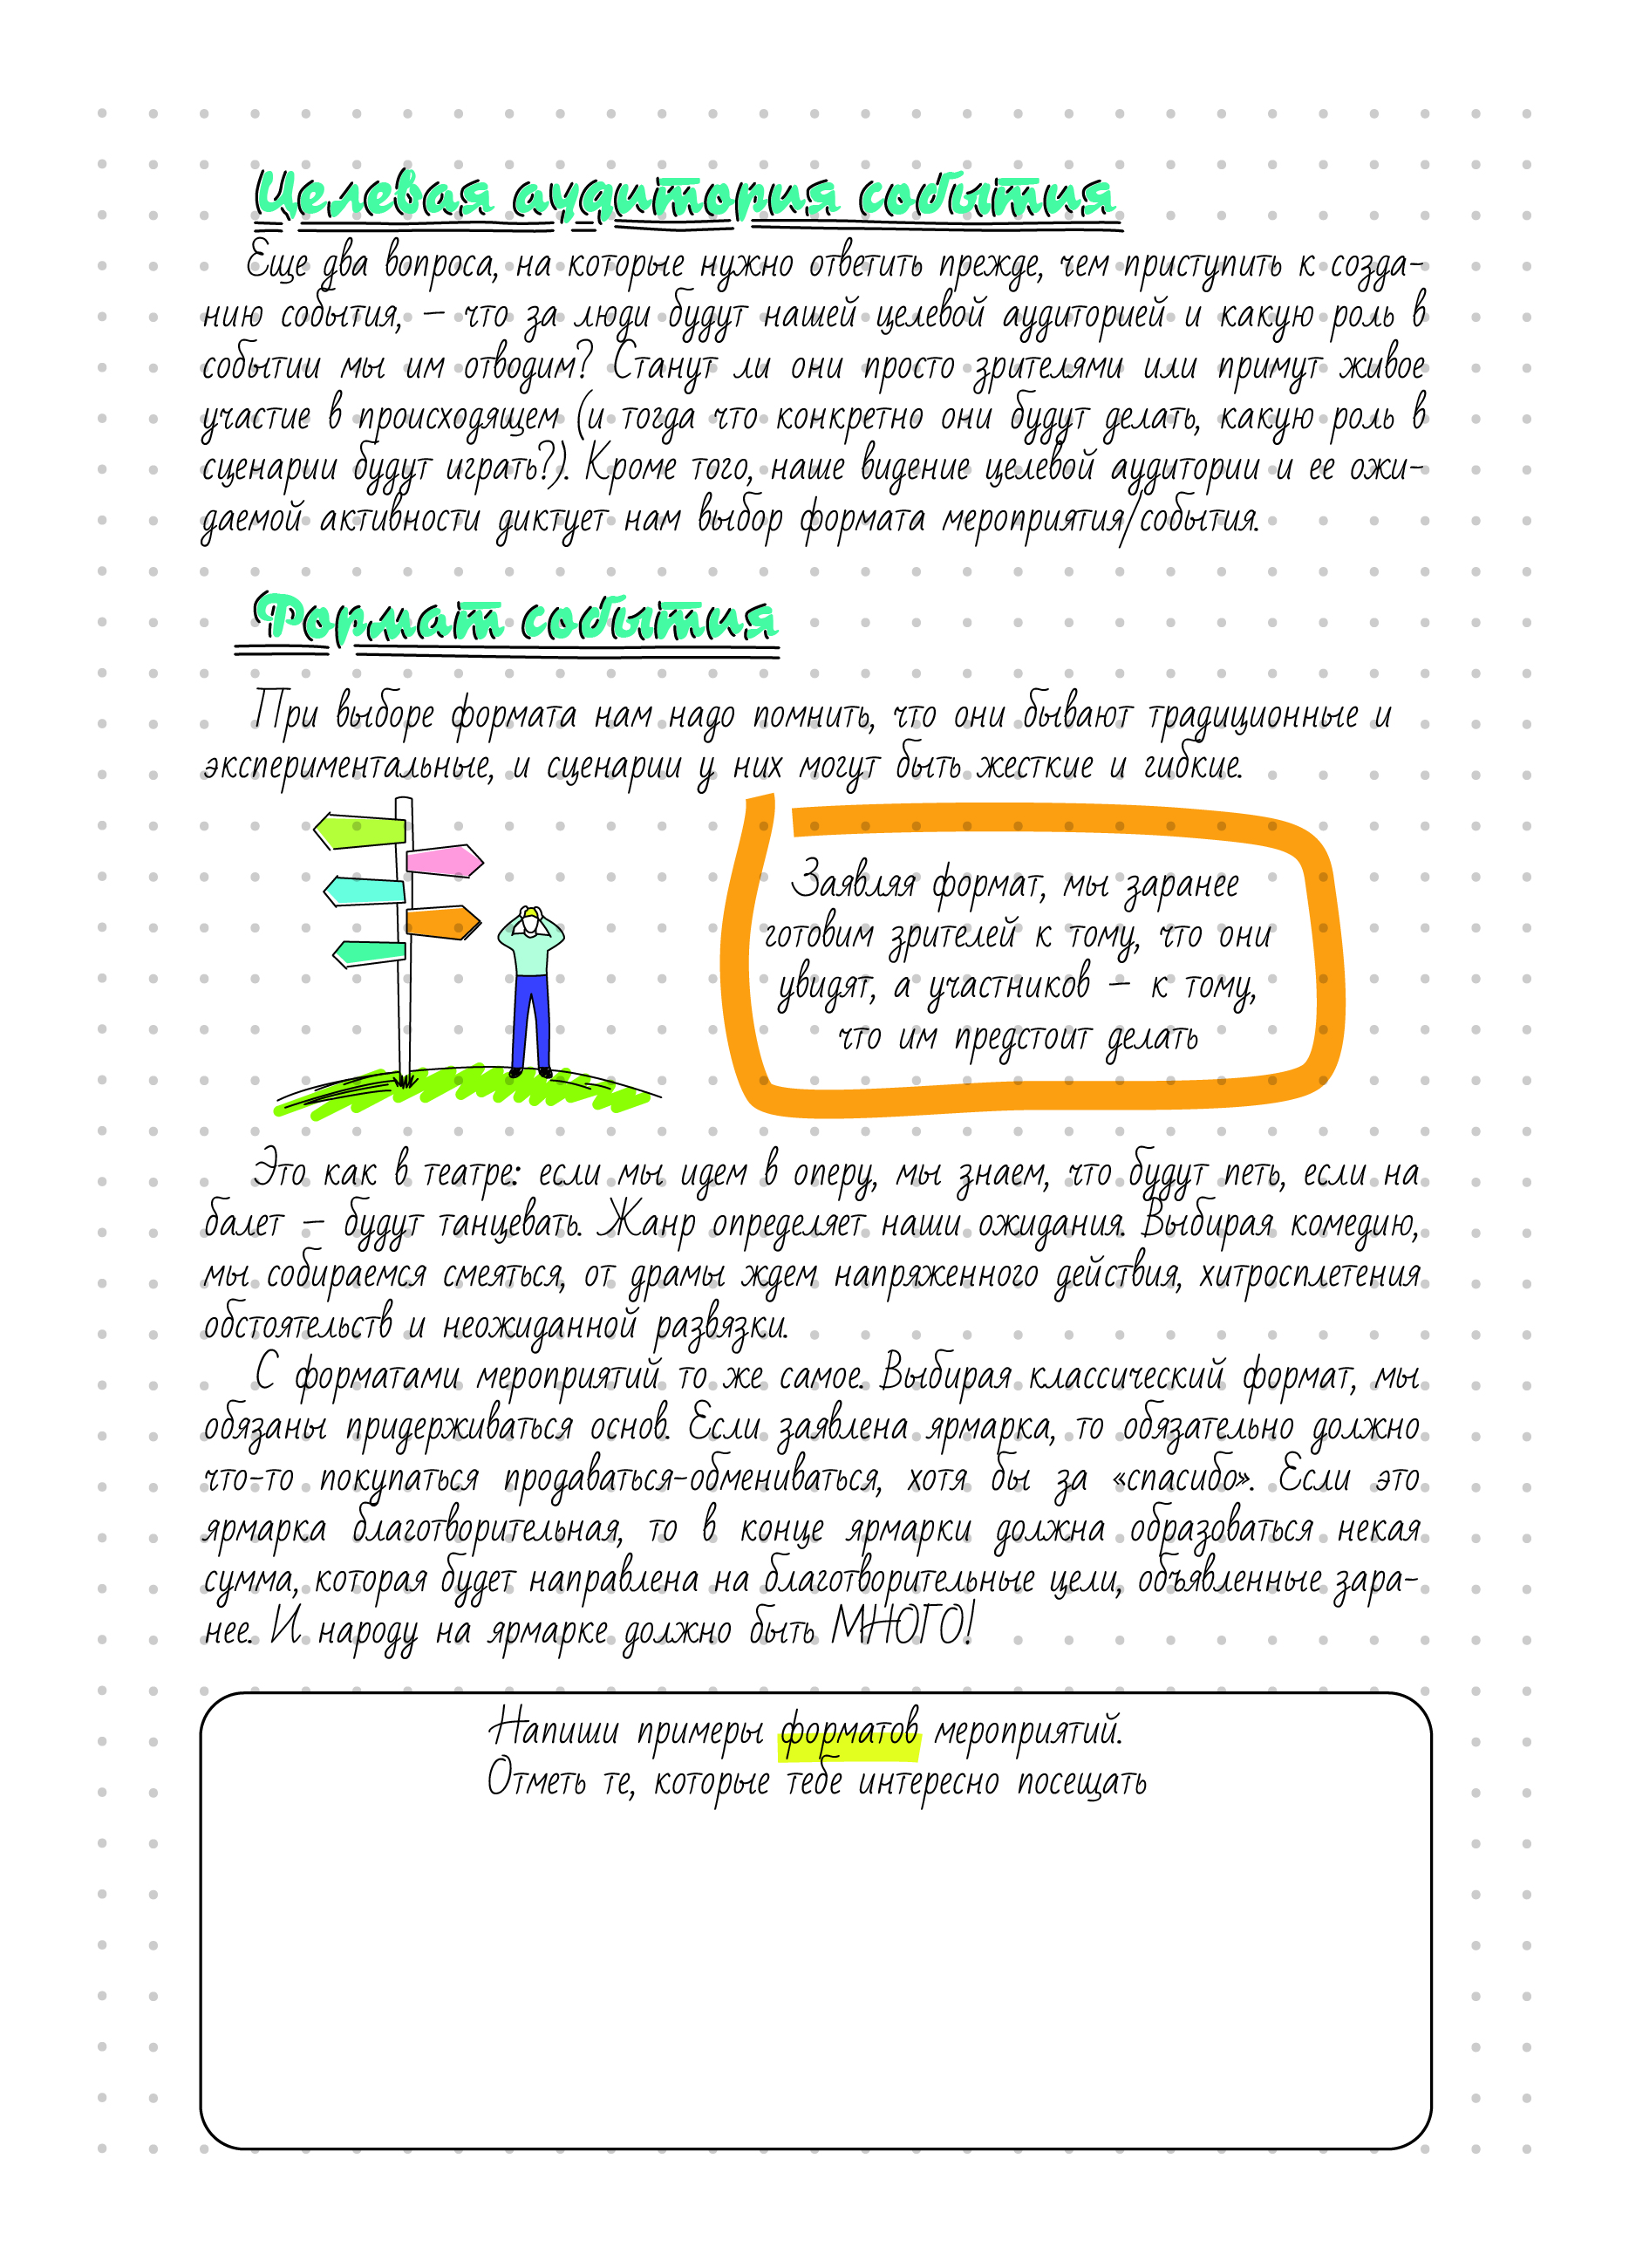 Целевая аудитория события
Еще два вопроса, на которые нужно ответить прежде, чем приступить к созда-
нию события, – что за люди будут нашей целевой аудиторией и какую роль в
событии мы им отводим? Станут ли они просто зрителями или примут живое
участие в происходящем (и тогда что конкретно они будут делать, какую роль в
сценарии будут играть?). Кроме того, наше видение целевой аудитории и ее ожи-
даемой активности диктует нам выбор формата мероприятия/события.
Формат события
При выборе формата нам надо помнить, что они бывают традиционные и
экспериментальные, и сценарии у них могут быть жесткие и гибкие.
Заявляя формат, мы заранее
готовим зрителей к тому, что они
увидят, а участников – к тому,
что им предстоит делать
Это как в театре: если мы идем в оперу, мы знаем, что будут петь, если на
балет – будут танцевать. Жанр определяет наши ожидания. Выбирая комедию,
мы собираемся смеяться, от драмы ждем напряженного действия, хитросплетения
обстоятельств и неожиданной развязки.
С форматами мероприятий то же самое. Выбирая классический формат, мы
обязаны придерживаться основ. Если заявлена ярмарка, то обязательно должно
что-то покупаться продаваться-обмениваться, хотя бы за «спасибо». Если это
ярмарка благотворительная, то в конце ярмарки должна образоваться некая
сумма, которая будет направлена на благотворительные цели, объявленные зара-
нее. И народу на ярмарке должно быть МНОГО!
Напиши примеры форматов мероприятий.
Отметь те, которые тебе интересно посещать